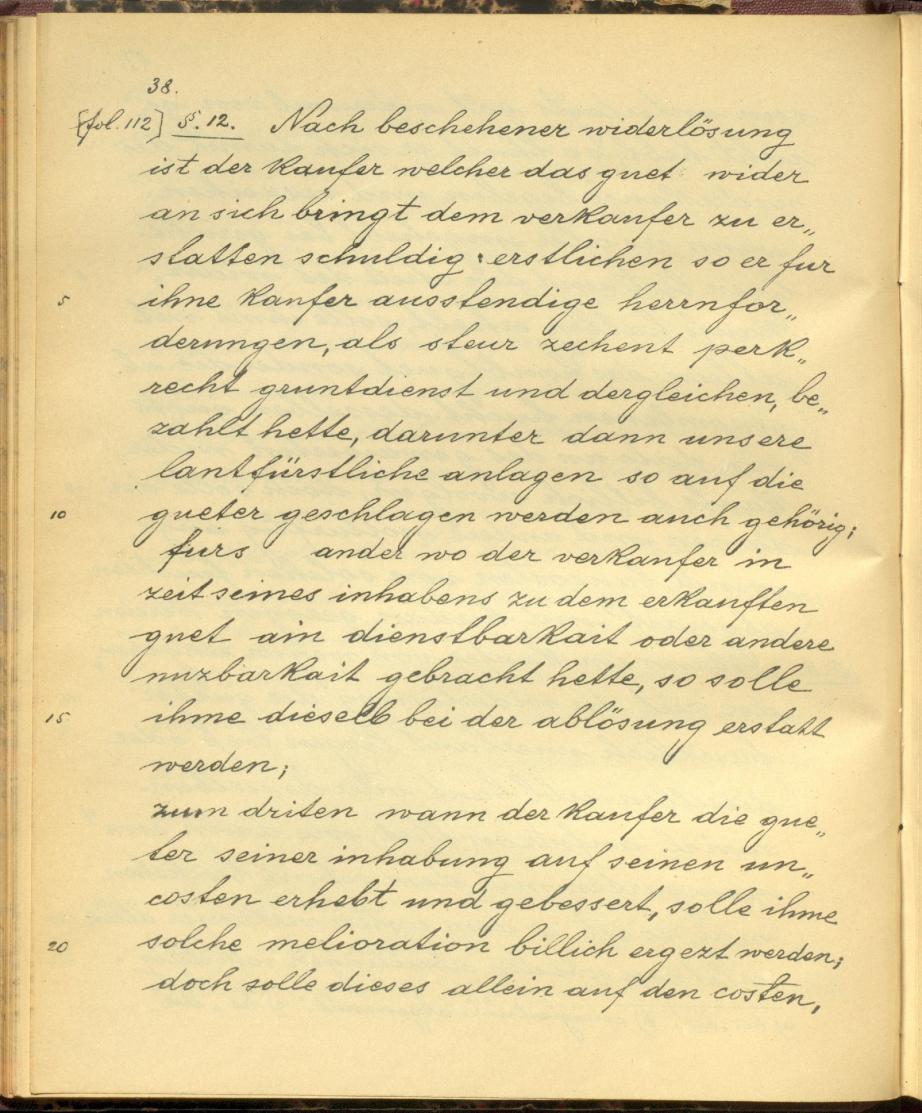 38.
[fol. 112] §. 12. Nach beschehener widerlösung
ist der kaufer welcher das guet wider
an sich bringt dem verkaufer zu er„
statten schuldig: erstlichen so er fur
5 ihne kaufer ausstendige herrnfor„
derungen, als steur zechent perk„
recht gruntdienst und dergleichen, be„
zahlt hette, darunter dann unsere
lantfürstliche anlagen so auf die
10 gueter geschlagen werden auch gehörig;
furs ander wo der verkaufer in
zeit seines inhabens zu dem erkauften
guet ain dienstbarkait oder andere
nuzbarkait gebracht hette, so solle
15 ihme dieselb bei der ablösung erstatt
werden;
zum driten wann der kaufer die gue„
ter seiner inhabung auf seinen un„
costen erhebt und gebessert, solle ihme
20 solche melioration billich ergezt werden;
doch solle dieses allein auf den costen,